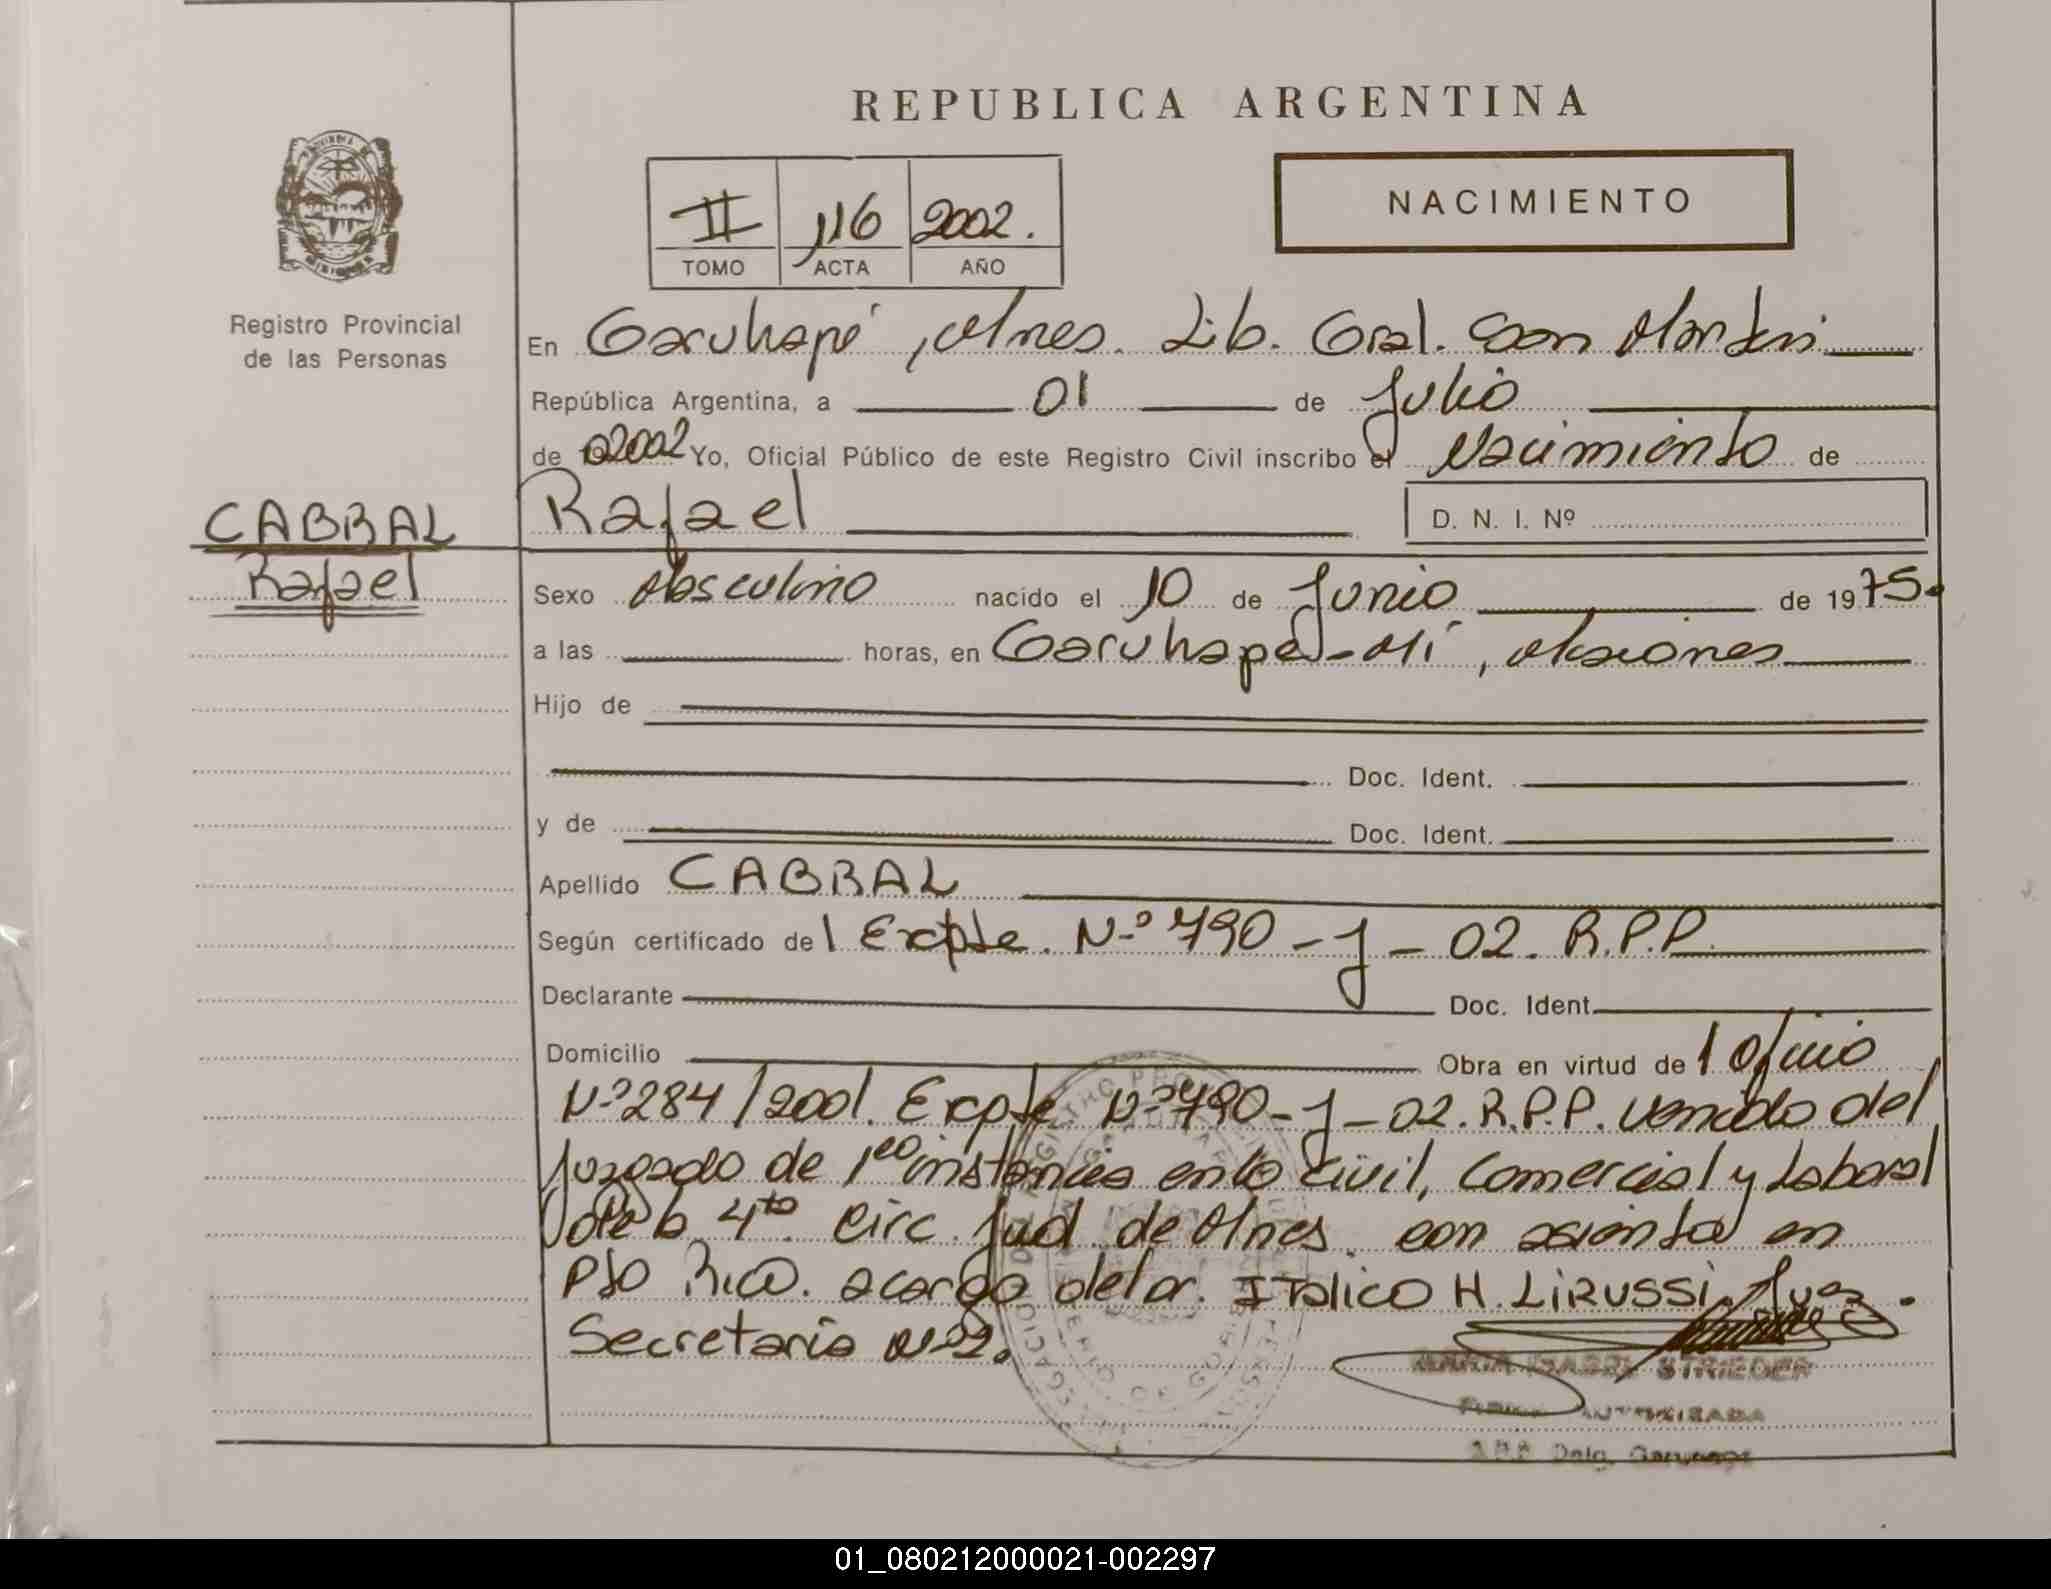 REPUBLICA ARGENTINA
NACIMIENTO
II 116 2002.
TOMO ACTA AÑO
Registro Provincial
de las Personas
En Garuhapé, Mnes. Lib. Gral. San Martín
República Argentina, a 01 de Julio
de 2002 Yo, Oficial Público de este Registro Civil inscribo el Nacimiento de
CABRAL
Rafael
Rafael D. N. I. Nº
Sexo Masculino nacido el 10 de Junio de 1975.
a las horas, en Garuhapé-Mí, Misiones
Hijo de
Doc. Ident.
y de Doc. Ident.
Apellido CABRAL
Según certificado de Expte. Nº 790-J-02. R.P.P.
Declarante Doc. Ident.
Domicilio Obra en virtud de Oficio
Nº 284/2001. Expte Nº 790-J-02. R.P.P. venido del
Juzgado de 1ra instancia en lo Civil, Comercial y Laboral
de la 4ta Circ. Jud de Mnes. con asiento en
Pto Rico. a cargo del Dr. Italico H. LIRUSSI, Juez.
Secretaría Nº 2.
STRIEDER
AUTORIZADA
01_080212000021-002297